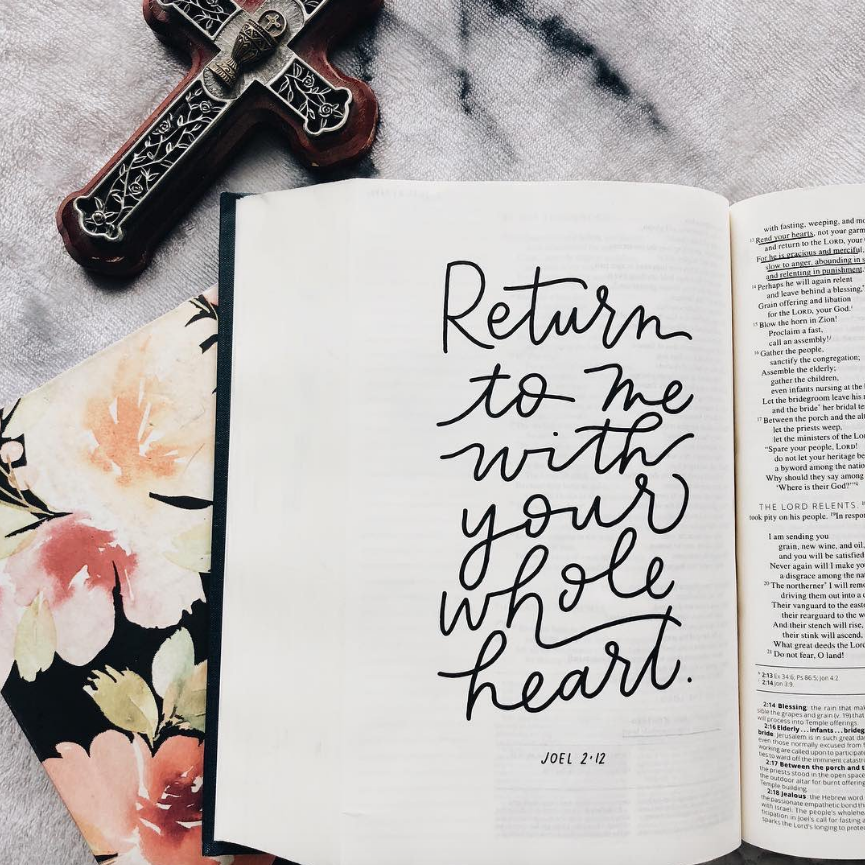 Return
to me
with
your
whole
heart.
JOEL 2:12
with fasting, weeping, and
13 Rend your hearts, not your
and return to the LORD, your
For he is gracious and merciful,
slow to anger, abounding in
and relenting in punishment.
14 Perhaps he will again relent
and leave behind a blessing,
Grain offering and libation
for the LORD, your God.
15 Blow the horn in Zion!
Proclaim a fast,
call an assembly!
16 Gather the people,
sanctify the congregation;
Assemble the elderly;
gather the children,
even infants nursing at the
Let the bridegroom leave his
and the bride her bridal
17 Between the porch and the
let the priests weep,
let the ministers of the
“Spare your people, LORD!
do not let your heritage
a byword among the
Why should they say among
‘Where is their God?’”
THE LORD RELENTS.
took pity on his people. 19 In
I am sending you
grain, new wine, and oil,
and you will be satisfied
Never again will I make
a disgrace among the
20 The northerner I will
driving them out into a
Their vanguard to the
their rearguard to the
And their stench will rise,
their stink will ascend,
What great deeds the
21 Do not fear, O land!
2:13 Ex 34:6; Ps 86:5; Jon 4:2
2:14 Jon 3:9.
2:14 Blessing: the rain that
the grapes and grain (v. 19) that
will process into Temple offerings.
2:16 Elderly . . . infants . . .
bride: Jerusalem is in such great
even those normally excused from
working are called upon to
to ward off the imminent
2:17 Between the porch and
the priests stood in the open
the outdoor altar for burnt
Temple building.
2:18 Jealous: the Hebrew word
the passionate empathetic bond
with Israel. The people's
in Joel's call for fasting
sparks the Lord's longing to